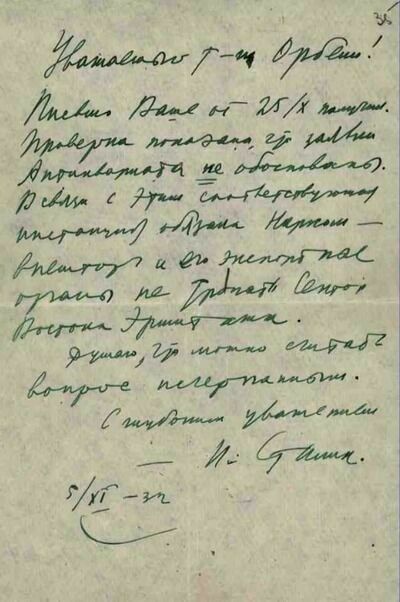 35
Уважаемый т-щ Орбели!
Письмо Ваше от 25/X получил.
Проверка показала, что заявки
Антиквариата не обоснованы.
В связи с этим соответствующая
инстанция обязала Нарком–
внешторг и его экспортные
органы не трогать Сектор
Востока Эрмитажа.
Думаю, что можно считать
вопрос исчерпанным.
С глубоким уважением
— И. Сталин.
5/XI –32